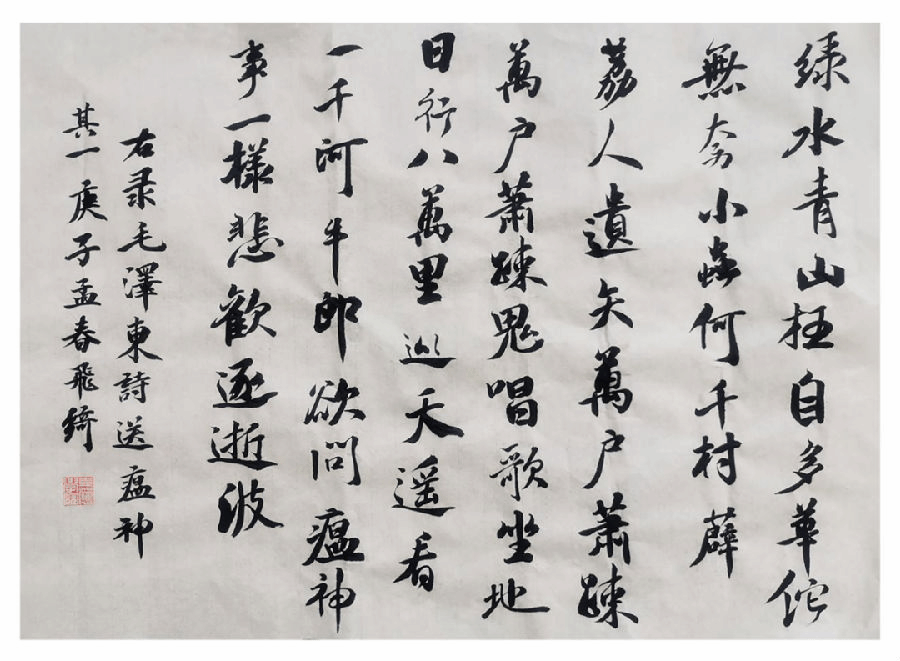 绿水青山枉自多華佗
無奈小蟲何千村薜
荔人遺矢萬户蕭疎
萬户蕭疎鬼唱歌坐地
日行八萬里巡天遥看
一千河牛郎欲問瘟神
事一樣悲歡逐逝波
右录毛澤東詩送瘟神
其一庚子孟春飛綺